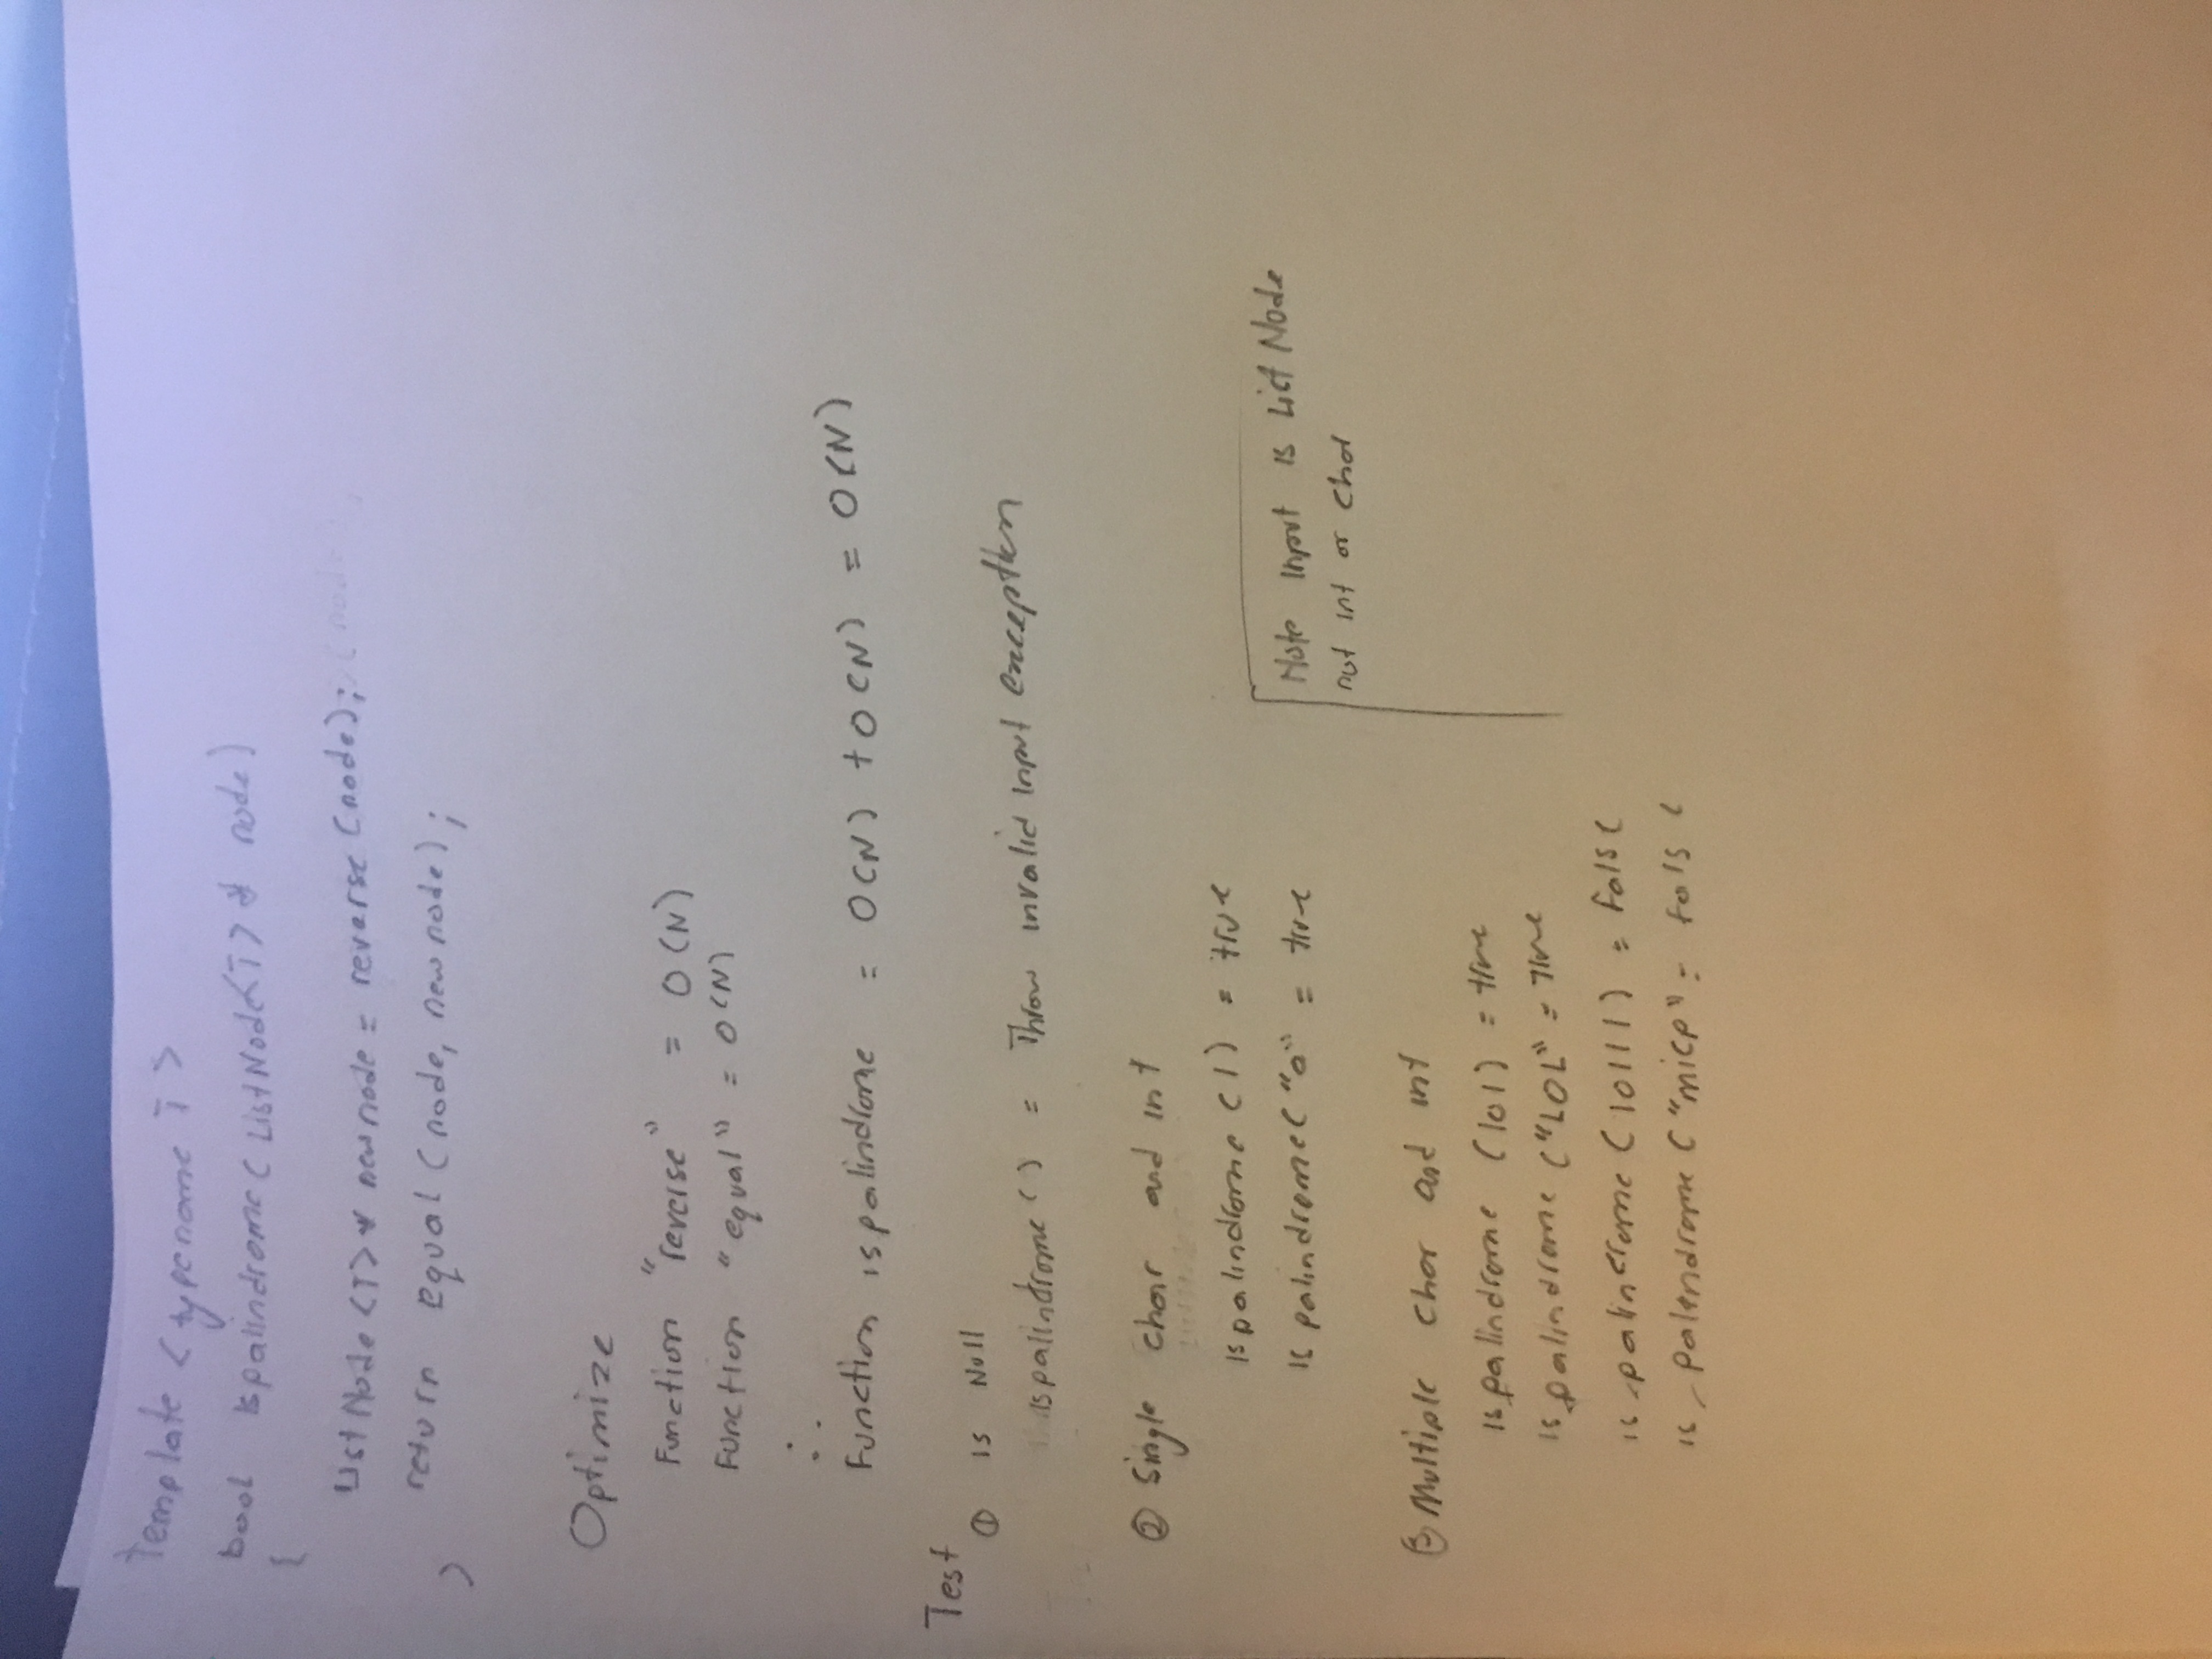 Template <typename T>
bool Ispalindrome(ListNode<T>* node)
{
ListNode<T>* newnode = reverse(node);
return equal(node, newnode);
}
Optimize
Function "reverse" = O(N)
Function "equal" = O(N)
∴
Function ispalindrome = O(N) + O(N) = O(N)
Test
① is Null
Ispalindrome() = Throw invalid input exception
② Single char and int
Ispalindrome(1) = true
Is palindrome("a" = true
Note Input is ListNode
not int or char
③ Multiple char and int
Is palindrome (101) = true
Is palindrome ("LOL" = True
is palindrome (10111) = False
is palendrome ("mice" = false